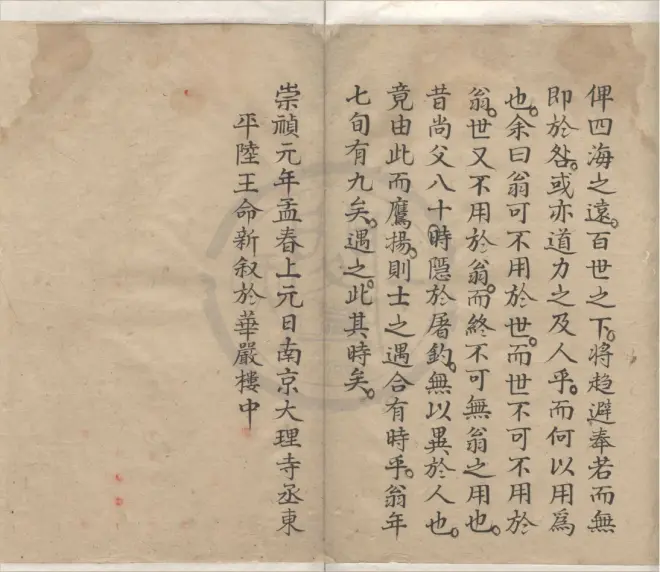 俾四海之遠。百世之下。將趋避奉若而無
即於咎。或亦道力之及人乎。而何以用爲
也。余曰翁可不用於世。而世不可不用於
翁。世又不用於翁。而終不可無翁之用也。
昔尚父八十時隱於屠釣。無以異於人也。
竟由此而鷹揚。則士之遇合有時乎。翁年
七旬有九矣。遇之。此其時矣。
崇禎元年孟春上元日南京大理寺丞東
平陸王命新叙於華嚴樓中